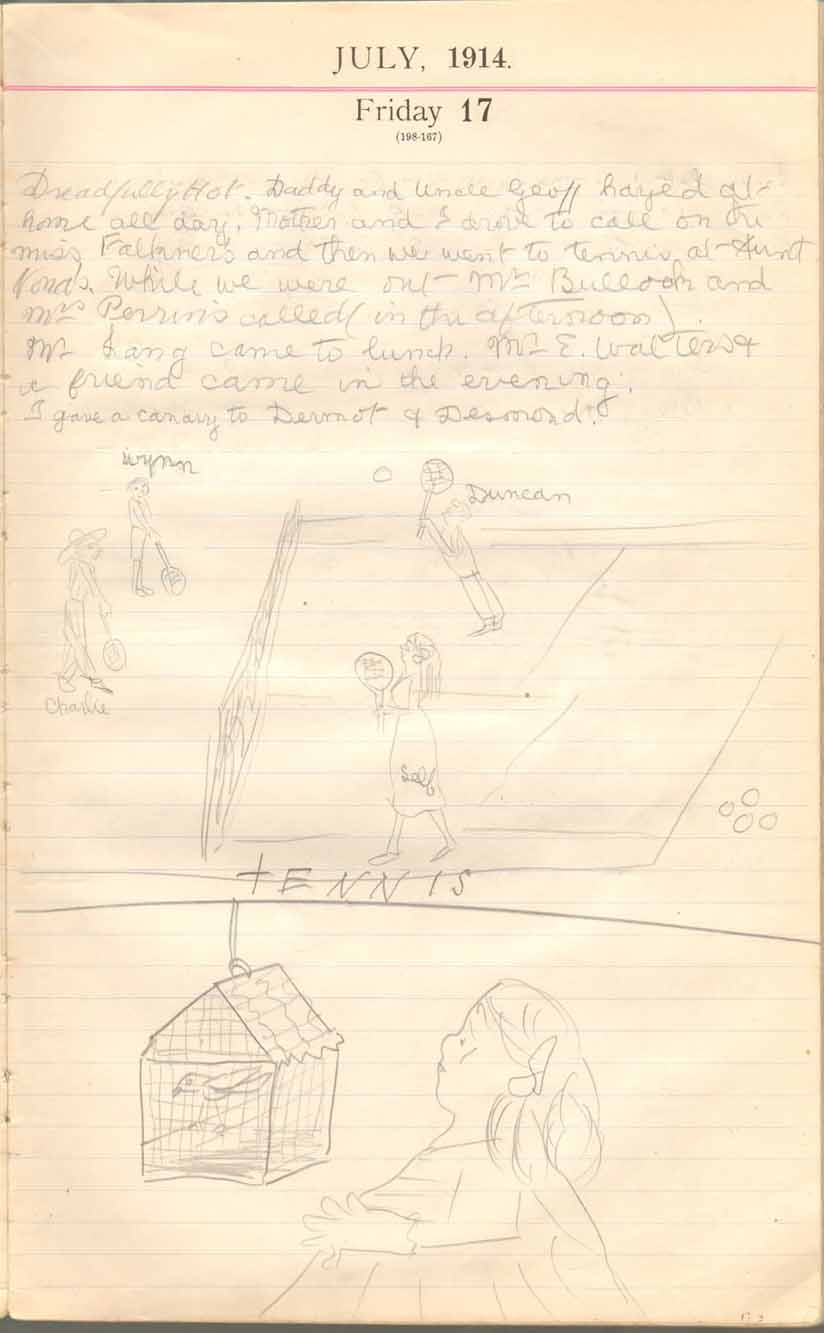 JULY, 1914.
Friday 17
(198-167)
Dreadfully Hot. Daddy and Uncle Geoff hayed at
home all day. Mother and I drove to call on the
miss Falkner's and then we went to tennis at Aunt
Nora's. While we were out Mr Bullock and
Mrs Perrins called (in the afternoon).
Mr Lang came to lunch. Mr E. Walters &
a friend came in the evening.
I gave a canary to Dermot & Desmond.
Wynn
Duncan
Charlie
Self
TENNIS